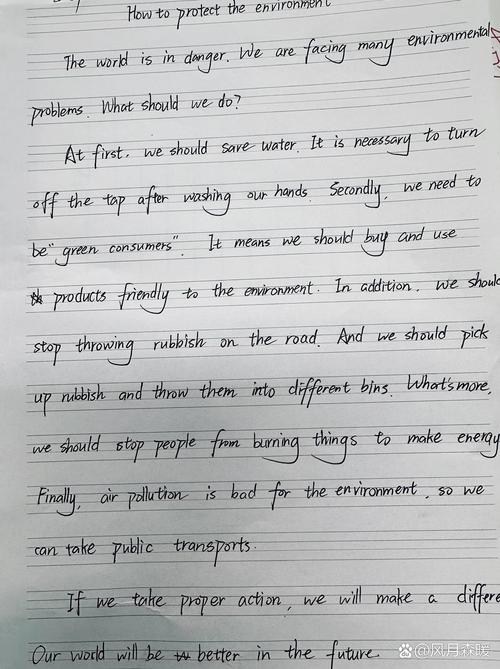 How to protect the environment
The world is in danger. We are facing many environmental
problems. What should we do?
At first, we should save water. It is necessary to turn
off the tap after washing our hands. Secondly, we need to
be "green consumers". It means we should buy and use
products friendly to the environment. In addition, we should
stop throwing rubbish on the road. And we should pick
up rubbish and throw them into different bins. What's more,
we should stop people from burning things to make energy
Finally, air pollution is bad for the environment, so we
can take public transports.
If we take proper action, we will make a differe
Our world will be better in the future
@风月森暖